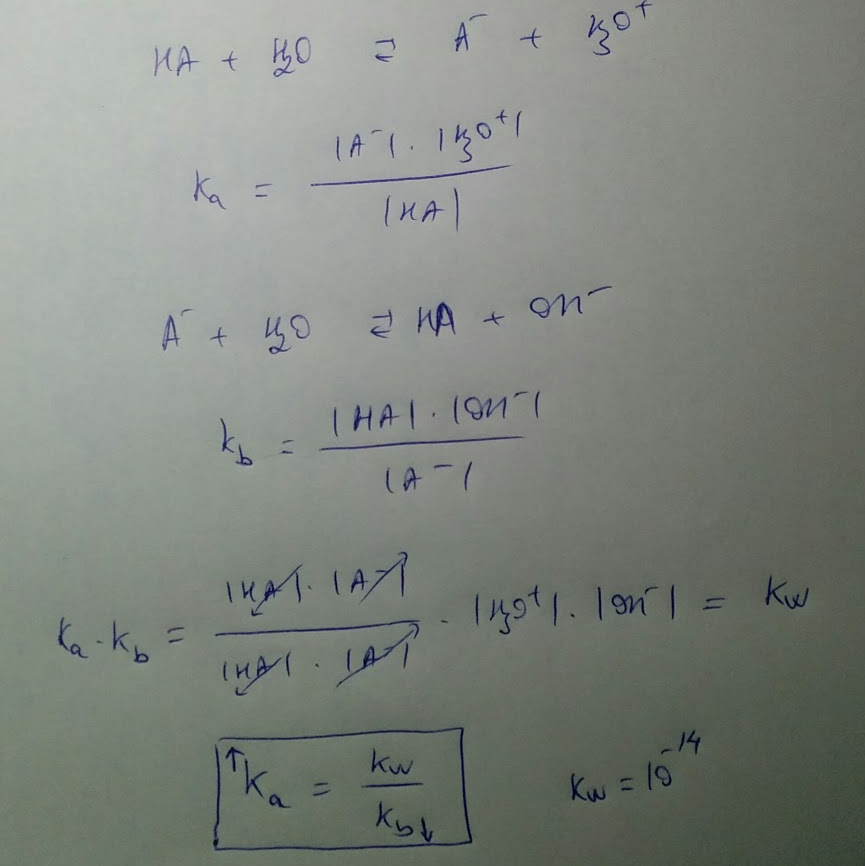 HA + H₂O ⇄ A⁻ + H₃O⁺
Ka = |A⁻| · |H₃O⁺| / |HA|
A⁻ + H₂O ⇄ HA + OH⁻
kb = |HA| · |OH⁻| / |A⁻|
Ka · Kb = |HA| · |A⁻| / |HA| · |A⁻| · |H₃O⁺| · |OH⁻| = Kw
↑Ka = Kw / Kb↓
Kw = 10⁻¹⁴